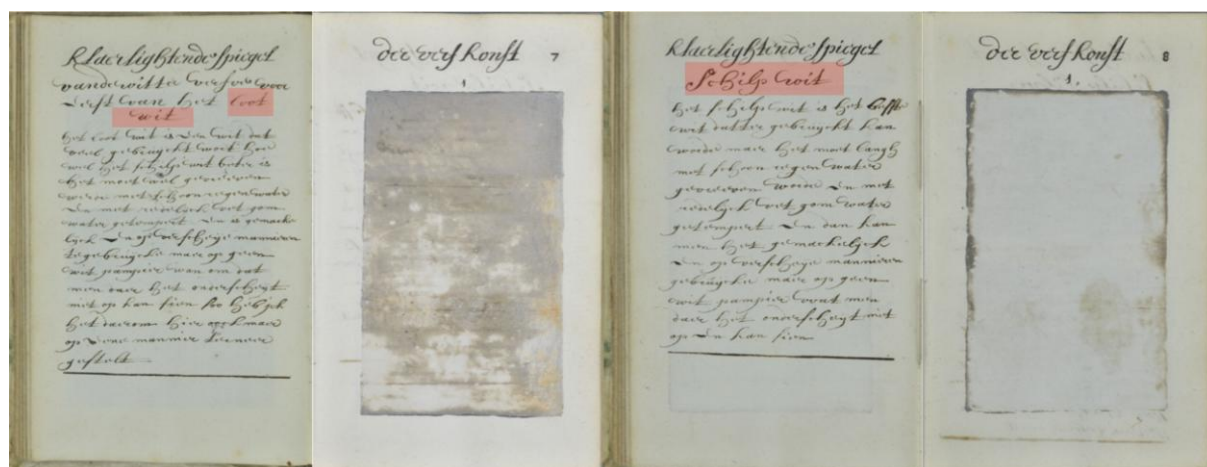 klaerlightende spiegel
vande witte verfve voor
Eerst van het loot
wit
het loot wit is een wit dat
veel gebruyckt wort hoe
wel het schilp wit beter is
het moet wel gevreven
werden met schoon regen water
en met redelyck vet gom
water getempert en is gemacke
lyck en op verscheyde mannieren
te gebruycke maer op geen
wit pampier want om dat
men daer het onderscheyt
niet op kan sien soo heb ick
het daerom hier oock maer
op eene mannier
gestelt
der verf konst 7
1
klaerlightende spiegel
Schilp wit
het schilp wit is het beste
wit datter gebruyckt kan
worde maer het moet langh
met schoon regen water
gevreven worde en met
redelyck vet gom water
getempert en dan kan
men het gemackelyck
en op verscheyde mannieren
gebruycke maer op geen
wit pampier want men
daer het onderscheyt niet
op en kan sien
der verf konst 8
1.